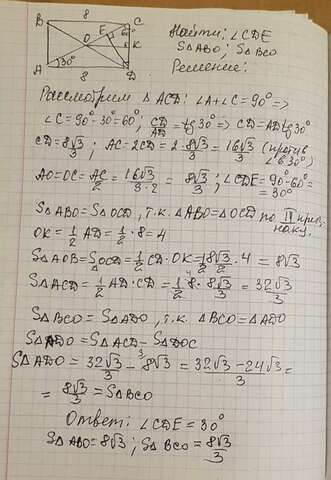 B 8 C
E
60°
O K
A 30° 8 D
Найти: ∠CDE
S△ABO; S△BCO
Решение:
Рассмотрим △ACD: ∠A+∠C=90° =>
∠C=90°-30°=60°; CD/AD=tg30° => CD=AD tg30°
CD=8√3/3; AC=2CD=2·8√3/3=16√3/3 (против ∠ в 30°)
AO=OC=AC/2=16√3/3·2=8√3/3; ∠CDE=90°-60°=
=30°
S△ABO=S△OCD, т.к. △ABO=△OCD по II призн.
OK=1/2 AD=1/2·8=4
S△AOB=S△OCD=1/2 CD·OK=1/2 8√3/2·4=8√3
S△ACD=1/2 AD·CD=1/2·8·8√3/3=32√3/3
S△BCO=S△ADO, т.к. △BCO=△ADO
S△ADO=S△ACD-S△DOC
S△ADO=32√3/3-8√3=32√3-24√3/3=
=8√3/3=S△BCO
Ответ: ∠CDE=30°
S△ABO=8√3; S△BCO=8√3/3